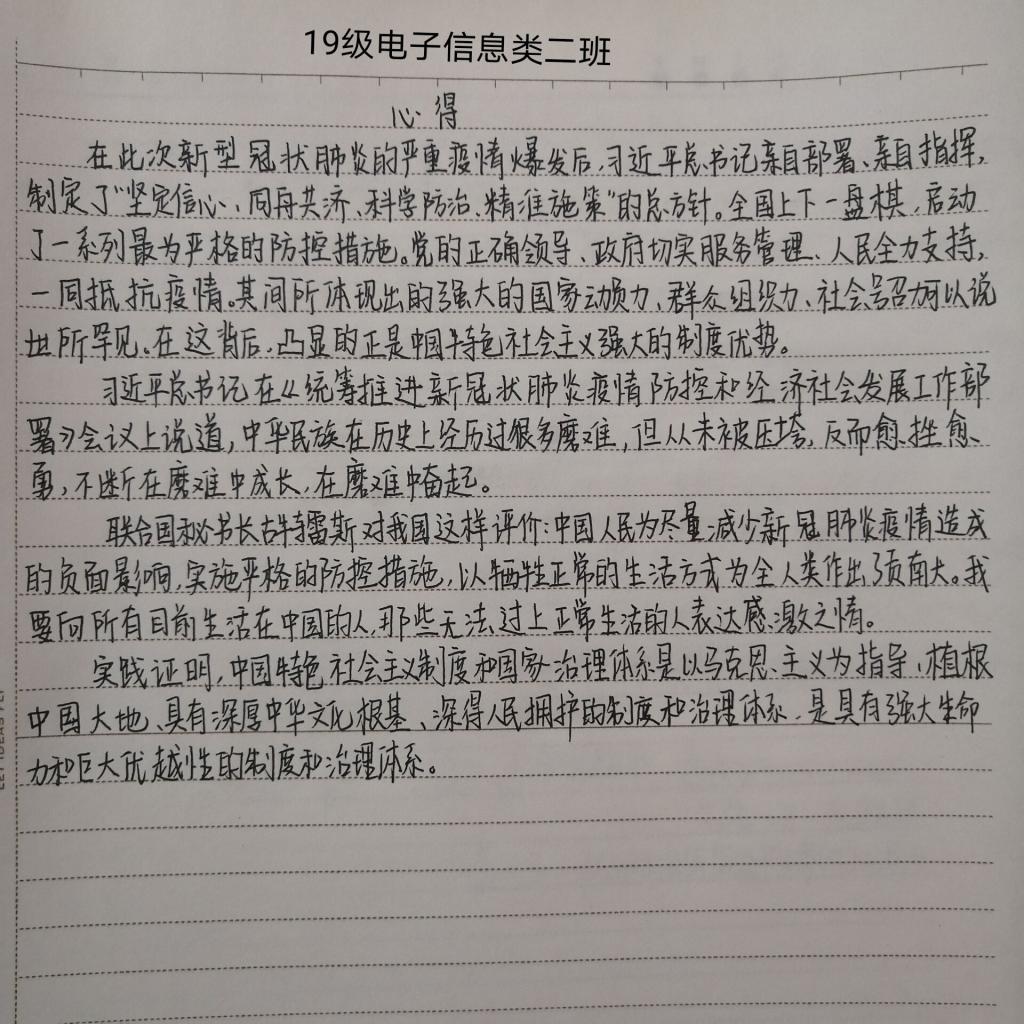 19级电子信息类二班
心得
在此次新型冠状肺炎的严重疫情爆发后,习近平总书记亲自部署、亲自指挥,
制定了"坚定信心、同舟共济、科学防治、精准施策"的总方针。全国上下一盘棋,启动
了一系列最为严格的防控措施。党的正确领导、政府切实服务管理、人民全力支持,
一同抵抗疫情。其间所体现出的强大的国家动员力、群众组织力、社会号召力可以说
世所罕见。在这背后,凸显的正是中国特色社会主义强大的制度优势。
习近平总书记在《统筹推进新冠状肺炎疫情防控和经济社会发展工作部
署》会议上说道,中华民族在历史上经历过很多磨难,但从未被压垮,反而愈挫愈
勇,不断在磨难中成长,在磨难中奋起。
联合国秘书长古特雷斯对我国这样评价:中国人民为尽量减少新冠肺炎疫情造成
的负面影响,实施严格的防控措施,以牺牲正常的生活方式为全人类作出了贡献。我
要向所有目前生活在中国的人,那些无法过上正常生活的人表达感激之情。
实践证明,中国特色社会主义制度和国家治理体系是以马克思主义为指导、植根
中国大地、具有深厚中华文化根基、深得人民拥护的制度和治理体系,是具有强大生命
力和巨大优越性的制度和治理体系。